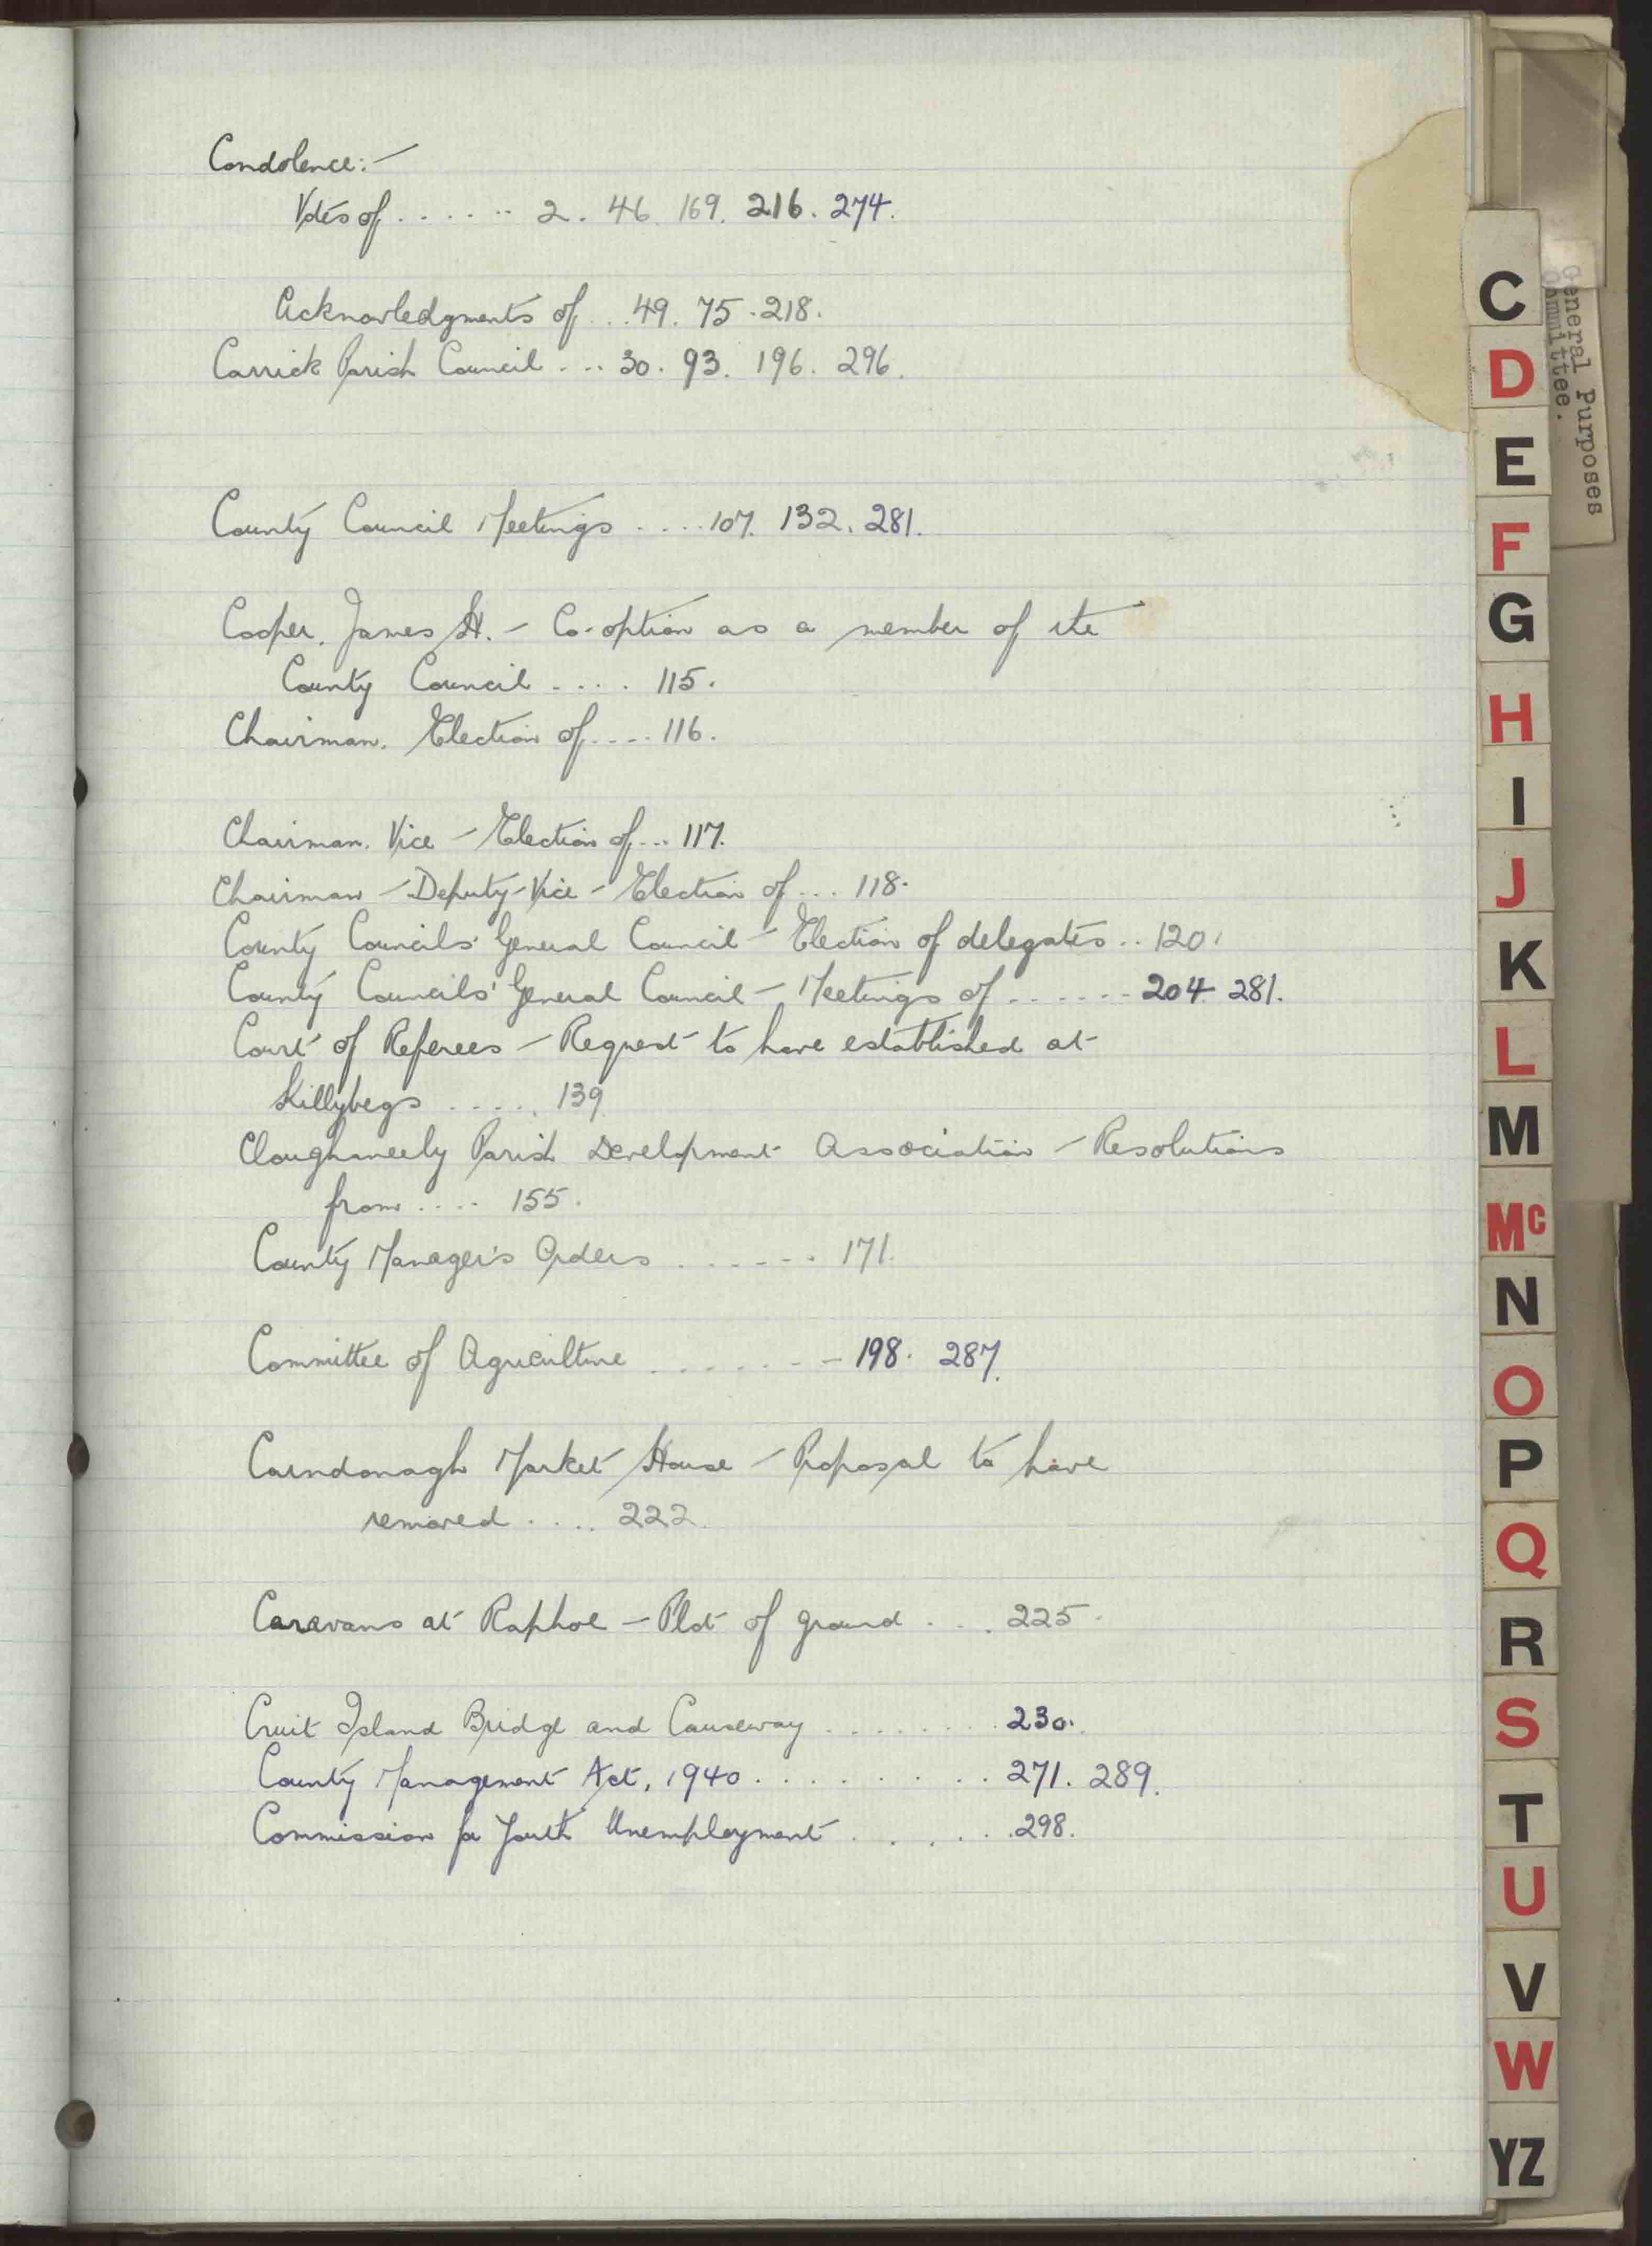 Condolence:-
Votes of ....... 2. 46. 169. 216. 274.
Acknowledgments of ... 49. 75. 218.
Carrick Parish Council .... 30. 93. 196. 296.
County Council Meetings ..... 107. 132. 281.
Cooper, James H. - Co-option as a member of the
County Council .... 115.
Chairman, Election of .... 116.
Chairman, Vice - Election of ... 117.
Chairman - Deputy-Vice - Election of ... 118.
County Councils' General Council - Election of delegates .. 120.
County Councils' General Council - Meetings of ....... 204. 281.
Court of Referees - Request to have established at
Killybegs ..... 139.
Cloughaneely Parish Development Association - Resolutions
from .... 155.
County Manager's Orders ...... 171.
Committee of Agriculture ....... 198. 287.
Carndonagh Market House - Proposal to have
removed .... 222.
Caravans at Raphoe - Plot of ground ... 225.
Cruit Island Bridge and Causeway ........ 230.
County Management Act, 1940 ......... 271. 289.
Commission for Youth Unemployment ...... 298.
General Purposes
Committee.
C
D
E
F
G
H
I
J
K
L
M
Mc
N
O
P
Q
R
S
T
U
V
W
YZ